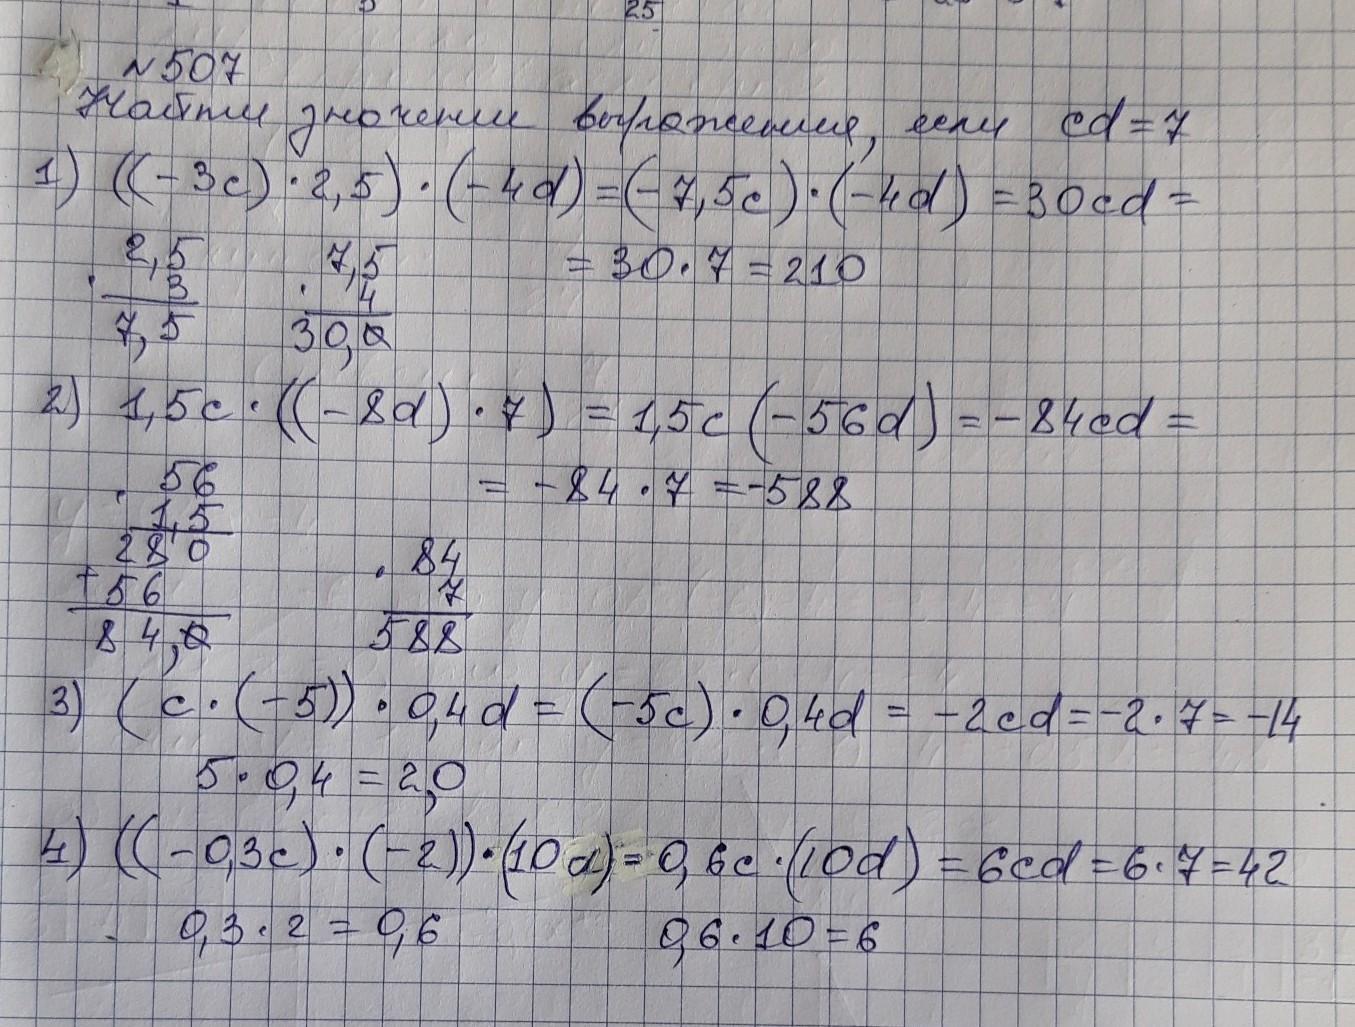 25
№507
Найти значении выражения, если cd=7
1) ((-3c)·2,5)·(-4d)=(-7,5c)·(-4d)=30cd=
2,5 7,5 =30·7=210
· 3 · 4
7,5 30,0
2) 1,5c·((-8d)·7)=1,5c(-56d)=-84cd=
· 56 =-84·7=-588
1,5
280 · 84
+56 7
84,0 588
3) (c·(-5))·0,4d=(-5c)·0,4d=-2cd=-2·7=-14
5·0,4=2,0
4) ((-0,3c)·(-2))·(10d)=0,6c·(10d)=6cd=6·7=42
0,3·2=0,6 0,6·10=6